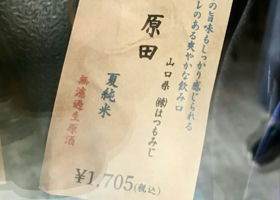 の旨味もしっかり感じられる
レのある爽やかな飲み口
原田
山口県 ㈱はつもみじ
夏純米
無濾過生原酒
¥1,705(税込)